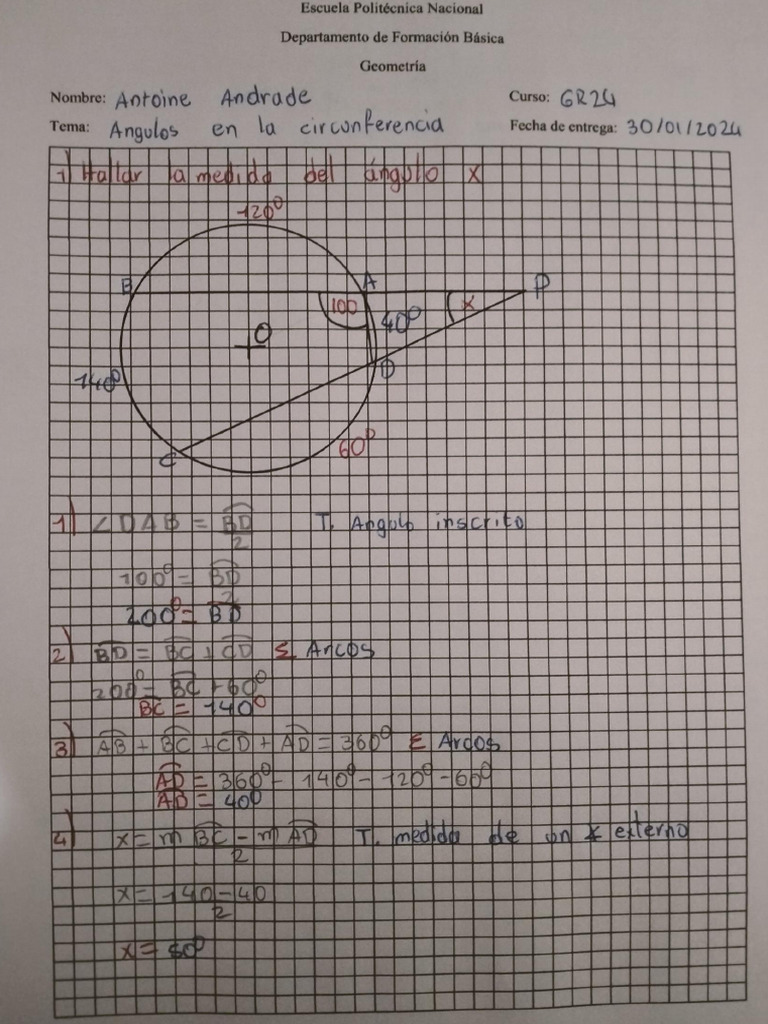 Escuela Politécnica Nacional
Departamento de Formación Básica
Geometría
Nombre: Antoine Andrade Curso: GR24
Tema: Angulos en la circunferencia Fecha de entrega: 30/01/2024
1) Hallar la medida del ángulo x
120°
B A P
100 40° x
O
D
140°
C 60°
1) ∠DAB = BD/2 T. Angulo inscrito
100° = BD/2
200° = BD
2) BD = BC + CD Σ Arcos
200° = BC + 60°
BC = 140°
3) AB + BC + CD + AD = 360° Σ Arcos
AD = 360° - 140° - 120° - 60°
AD = 40°
4) x = m BC - m AD / 2 T. medida de un ∡ externo
x = 140 - 40 / 2
x = 50°